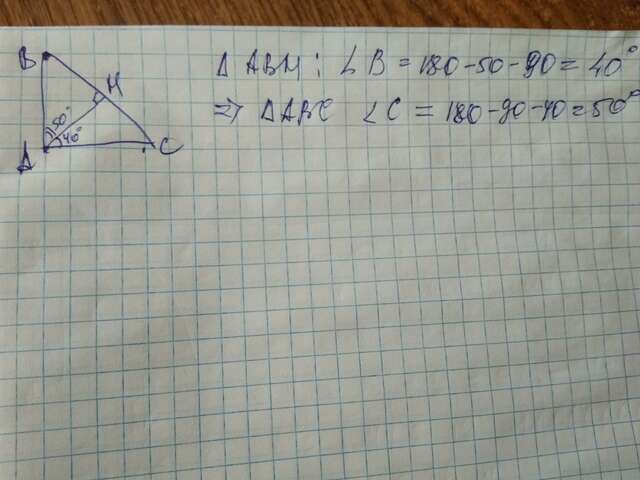 B
H
50°
40°
A
C
Δ ABH: ∠B = 180-50-90 = 40°
⇒ ΔABC ∠C = 180-90-40=50°